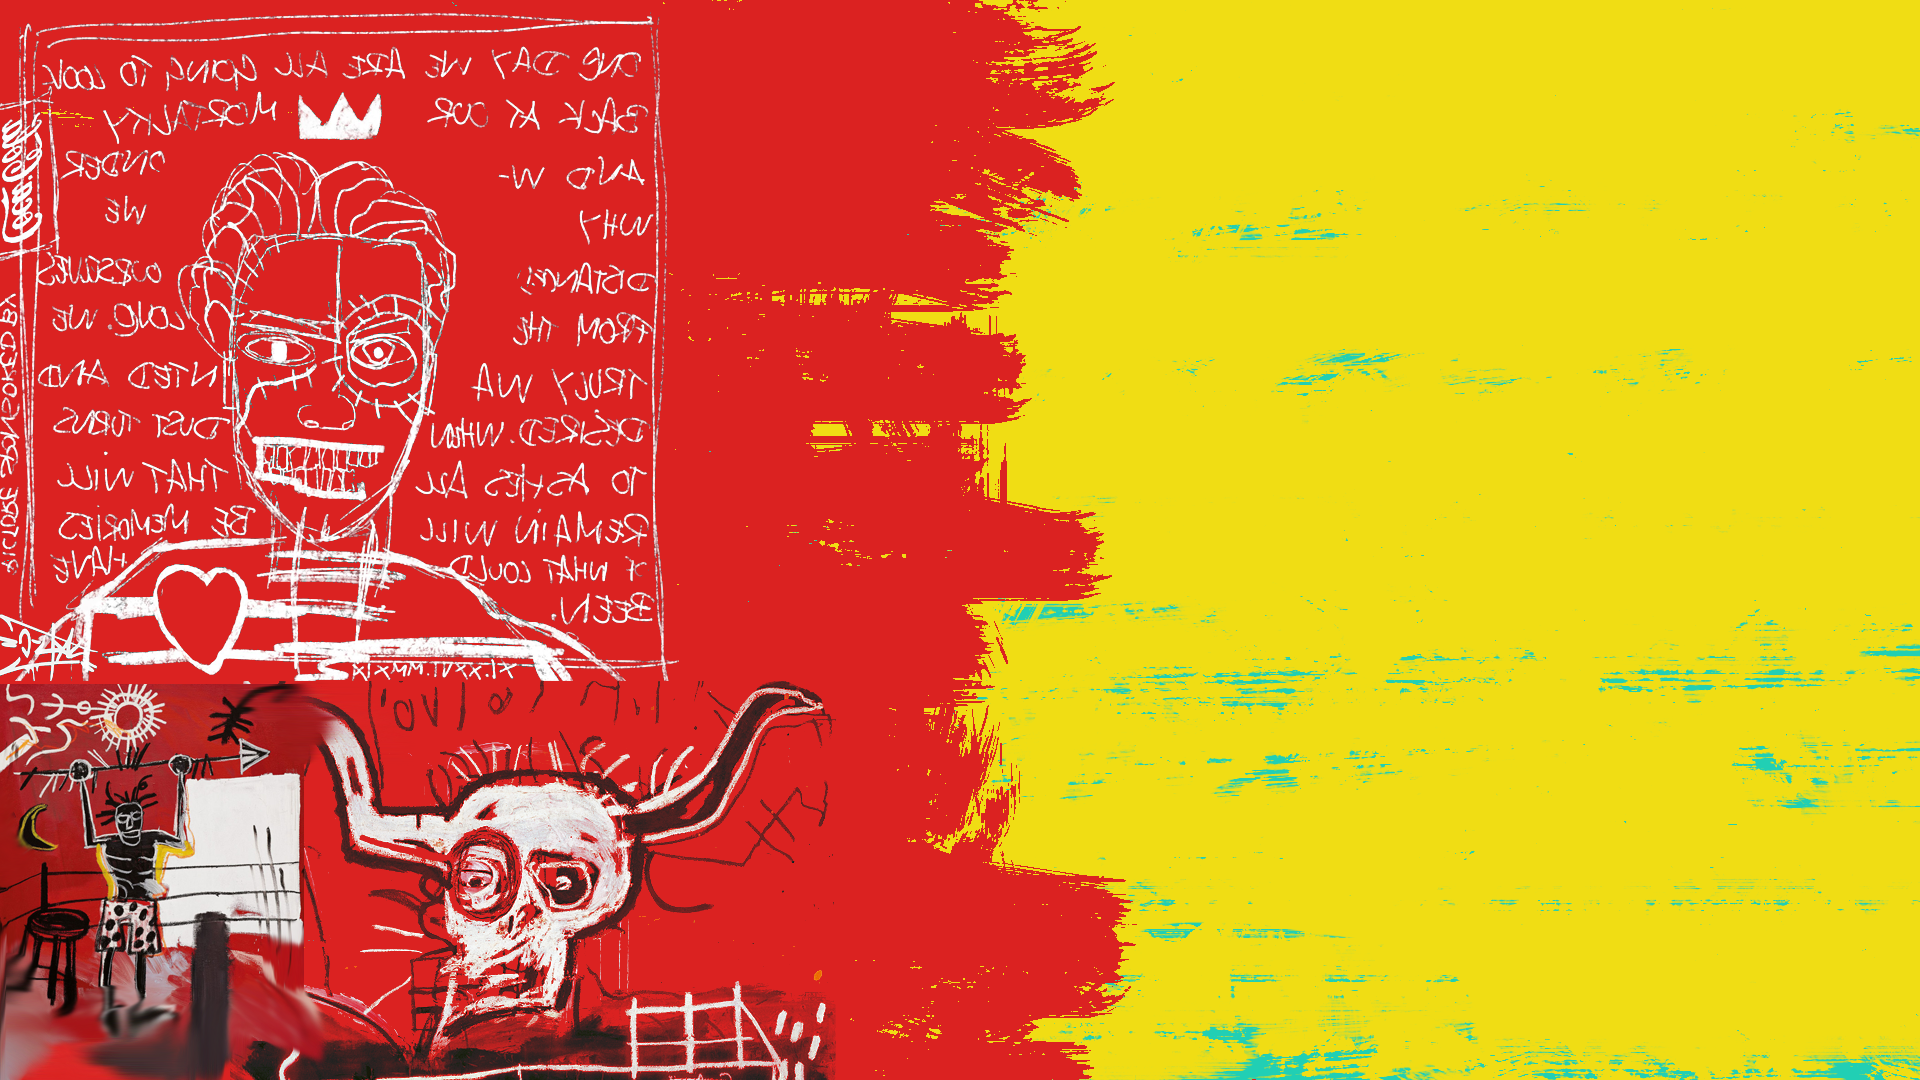 ONE DAY WE ARE ALL GOING TO LOOK
BACK AT OUR MORTALITY
AND W- ONDER
WHY WE
DISTANCE OURSELVES
FROM THE LOVE. WE
TRULY WA NTED AND
DESIRED. WHEN DUST TURNS
TO ASHES ALL THAT WILL
REMAIN WILL BE MEMORIES
OF WHAT COULD HAVE
BEEN.
Coca-Cola
PICTURE BY